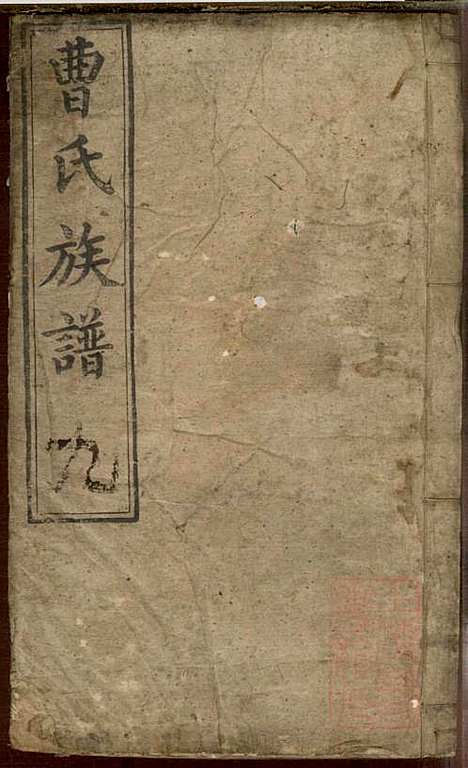 曹氏族譜
九